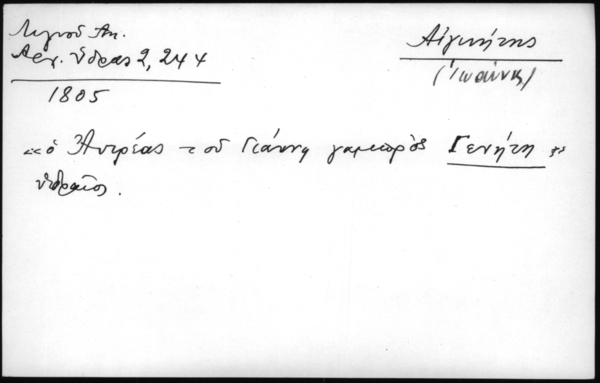 Λιγνοῦ Ἀν.
Ἀρχ. Ὕδρας 2, 244
1805
Αἰγινήτης
(Ἰωάννης)
«ὁ Ἀντρέας τοῦ Γιάννη γαμπρὸς Γενήτη»
ὑδραῖος.